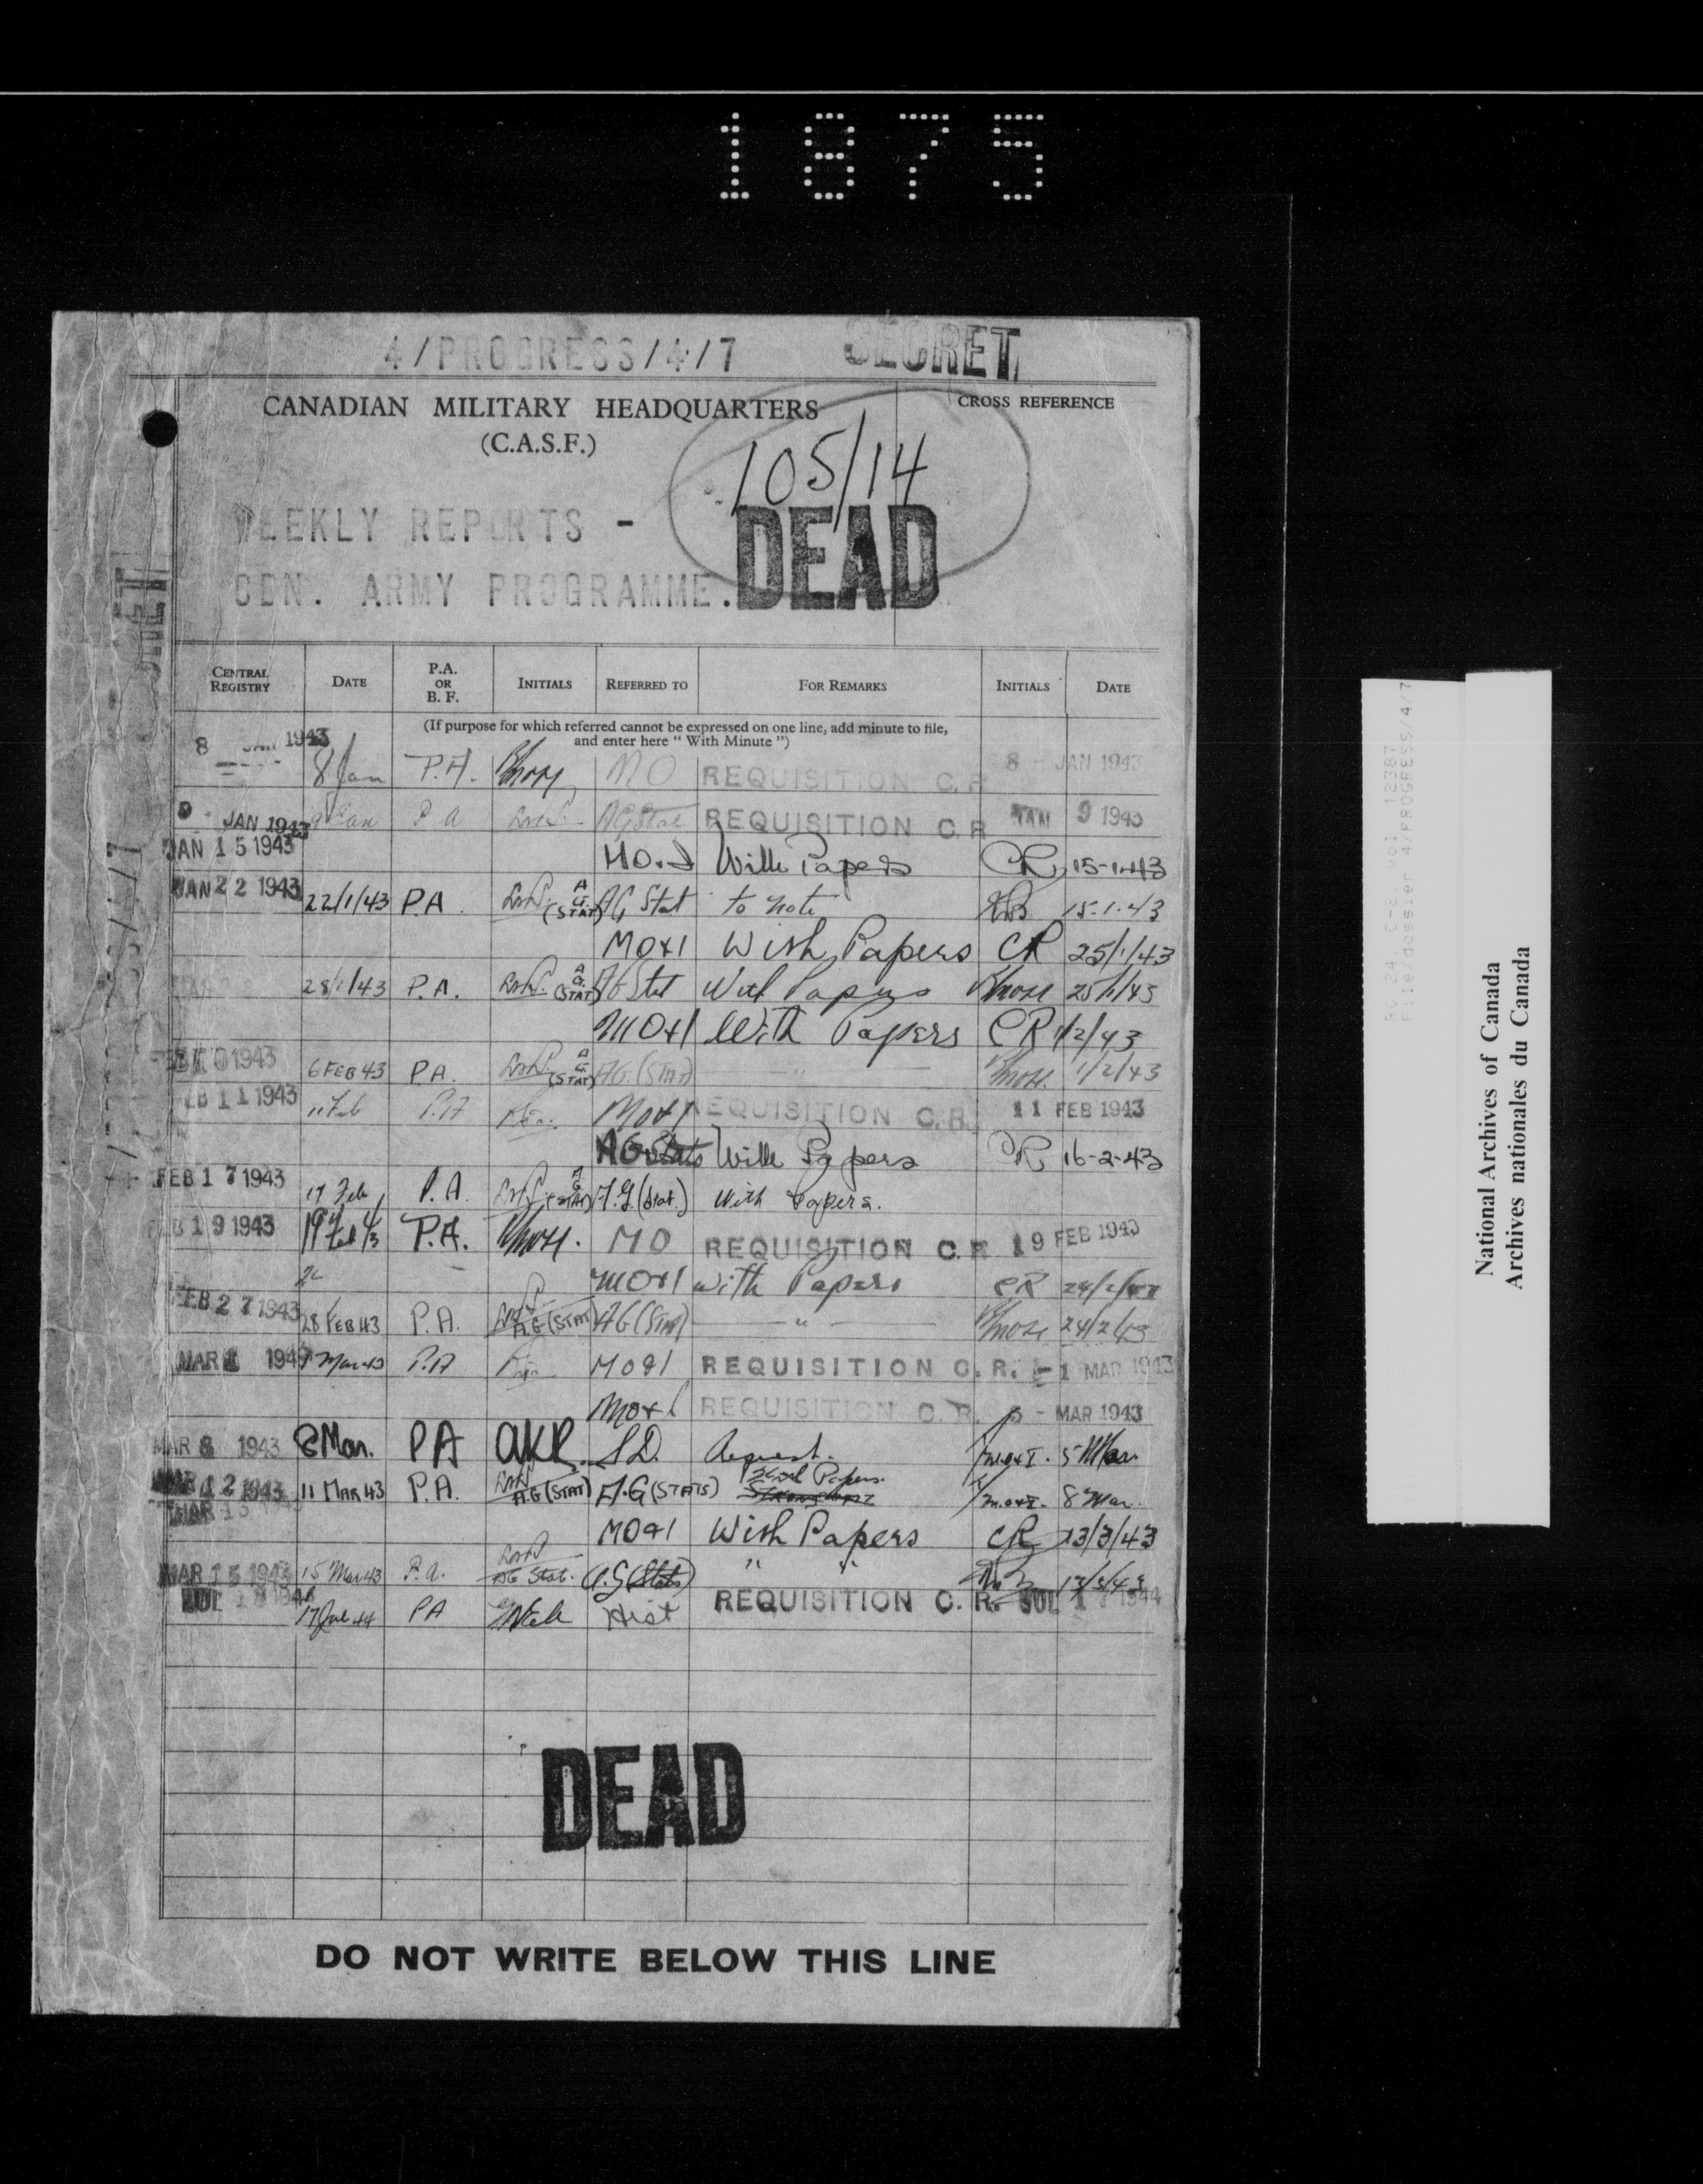 1875
4/PROGRESS/4/7 SECRET
CANADIAN MILITARY HEADQUARTERS
(C.A.S.F.)
CROSS REFERENCE
105/14
WEEKLY REPORTS -
CDN. ARMY PROGRAMME.
DEAD
CENTRAL REGISTRY DATE P.A. OR B. F. INITIALS REFERRED TO FOR REMARKS INITIALS DATE
(If purpose for which referred cannot be expressed on one line, add minute to file,
and enter here " With Minute ")
8 JAN 1943 8 Jan P.A. MO REQUISITION C.R. 8 - JAN 1943
9 - JAN 1943 9 Jan P A AG Stat REQUISITION C.R. JAN 9 1943
JAN 15 1943 With Papers CR 15-1-43
JAN 22 1943 22/1/43 P.A. A G (STAT) AG Stat to note 15.1.43
MO&I With Papers CR 25/1/43
28/1/43 P.A. A G. (STAT) AG Stat With Papers 25/1/43
MO&I With Papers CR 1/2/43
1943 6 FEB 43 P.A. A G. (STAT) AG. (STAT) — " — 1/2/43
FEB 11 1943 11 Feb P.A MO&I REQUISITION C.R. 11 FEB 1943
AG Stats With Papers CR 16-2-43
FEB 17 1943 17 Feb P.A. A G (STAT) A.G. (Stat.) With Papers.
FEB 19 1943 19 Feb 43 P.A. MO REQUISITION C.R. 19 FEB 1943
MO&I with Papers CR 24/2/43
FEB 27 1943 28 FEB 43 P.A. A.G (STAT) AG (STAT) — " — 24/2/43
MAR 1 1943 1 Mar 43 P.A MO&I REQUISITION C. R. - 1 MAR 1943
MO&I REQUISITION C. R. 5 - MAR 1943
MAR 8 1943 8 Mar. PA AKR. S.D. Request. M.O&I. 5 Mar
MAR 12 1943 11 MAR 43 P.A. A.G (STAT) A.G (STATS) With Papers. M.O&I. 8 Mar.
MAR 13
MO&I With Papers CR 13/3/43
MAR 15 1943 15 Mar 43 P.A. AG Stat. A.G (Stats) " " 13/3/43
JUL 18 1944 17 Jul 44 PA Hist REQUISITION C. R. JUL 17 1944
DEAD
DO NOT WRITE BELOW THIS LINE
File/dossier 4/PROGRESS 4/7
National Archives of Canada
Archives nationales du Canada